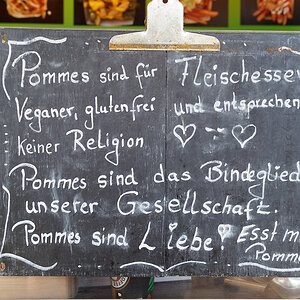 Pommes sind für Fleischesser
Veganer, glutenfrei und entsprechen
Keiner Religion ♡ -- ♡
Pommes sind das Bindeglied
unserer Gesellschaft.
Pommes sind Liebe! Esst m
Pomme